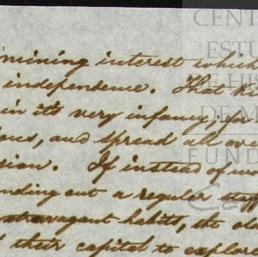 mining interest which
independence. That
in its very infancy, for
and spread all over
If instead of
out a regular staff
extravagant habits, the
their capital to explore
CENT
ESTU
DE HIS
DE M
FUND